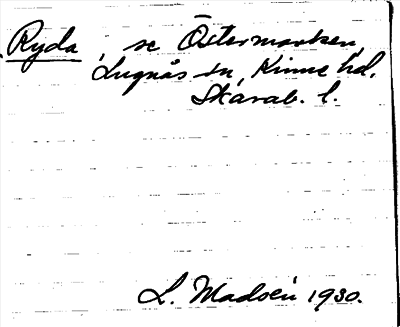 Ryda, se Östermarken,
Lugnås sn, Kinne hd.
Skarab. l.
L. Madsén 1930.